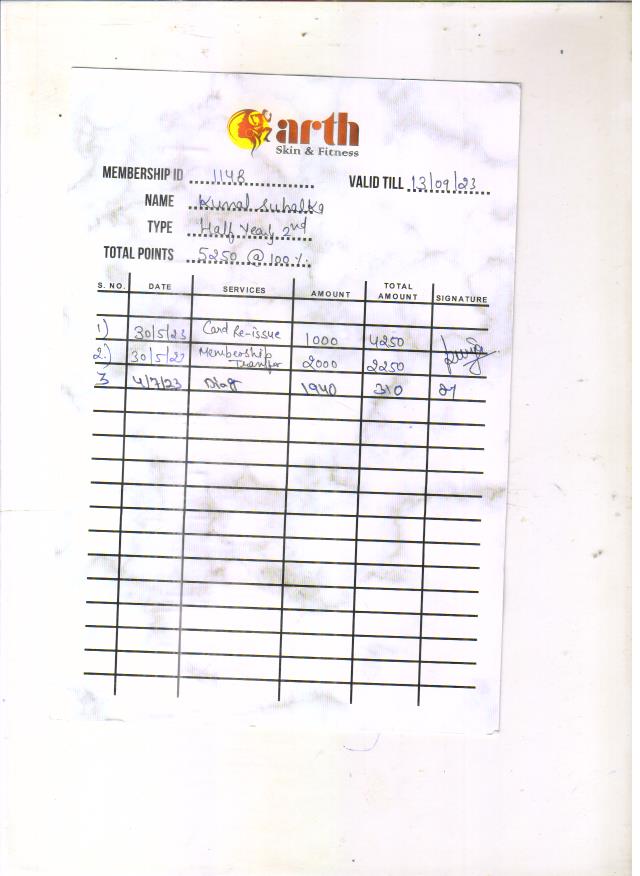 arth
Skin & Fitness
MEMBERSHIP ID 1148
VALID TILL 13/09/23
NAME Kunal Suhalka
TYPE Half Yearly 2nd
TOTAL POINTS 5250 @ 100 %.
S. NO. DATE SERVICES AMOUNT TOTAL AMOUNT SIGNATURE
1) 30/5/23 Card Re-issue 1000 4250
2.) 30/5/23 Membership Transfer 2000 2250
3 4/7/23 1940 310